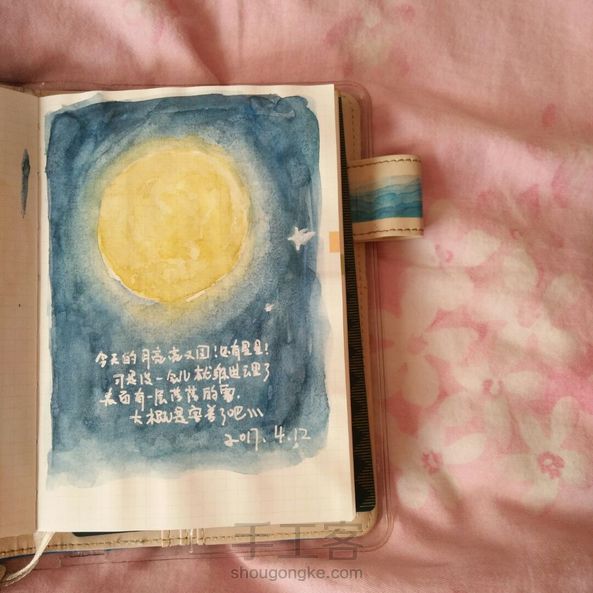 今天的月亮亮又圆!还有星星!
可是没一会儿就躲进云裡了
表面有一层薄薄的雾.
大概是害羞了吧\\\
2017.4.12
手工客
shougongke.com